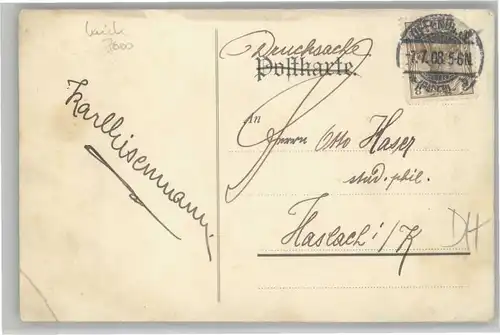 7000
Drucksache
Postkarte.
OFFENBURG
7.7.08. 5-6N.
(BADEN)
An
Herrn Otto Haser
stud. phil.
Haslach i/K
DH
Karl Eisenmann